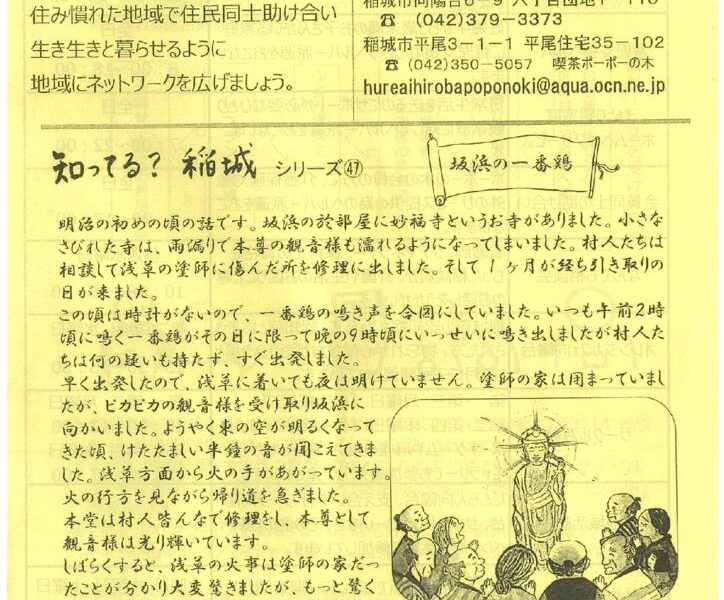 住み慣れた地域で住民同士助け合い
生き生きと暮らせるように
地域にネットワークを広げましょう。
☎ (042)379-3373
稲城市平尾3-1-1 平尾住宅35-102
☎ (042)350-5057 喫茶ポーポーの木
hureaihirobapoponoki@aqua.ocn.ne.jp
知ってる? 稲城 シリーズ㊼
坂浜の一番鶏
明治の初めの頃の話です。坂浜の於部屋に妙福寺というお寺がありました。小さな
さびれた寺は、雨漏りで本尊の観音様も濡れるようになってしまいました。村人たちは
相談して浅草の塗師に傷んだ所を修理に出しました。そして1ヶ月が経ち引き取りの
日が来ました。
この頃は時計がないので、一番鶏の鳴き声を合図にしていました。いつも午前2時
頃に鳴く一番鶏がその日に限って晩の9時頃にいっせいに鳴き出しましたが村人た
ちは何の疑いも持たず、すぐ出発しました。
早く出発したので、浅草に着いても夜は明けていません。塗師の家は閉まっていまし
たが、ピカピカの観音様を受け取り坂浜に
向かいました。ようやく東の空が明るくなって
きた頃、けたたましい半鐘の音が聞こえてきま
した。浅草方面から火の手があがっています。
火の行方を見ながら帰り道を急ぎました。
本堂は村人皆んなで修理をし、本尊として
観音様は光り輝いています。
しばらくすると、浅草の火事は塗師の家だっ
たことが分かり大変驚きましたが、もっと驚く